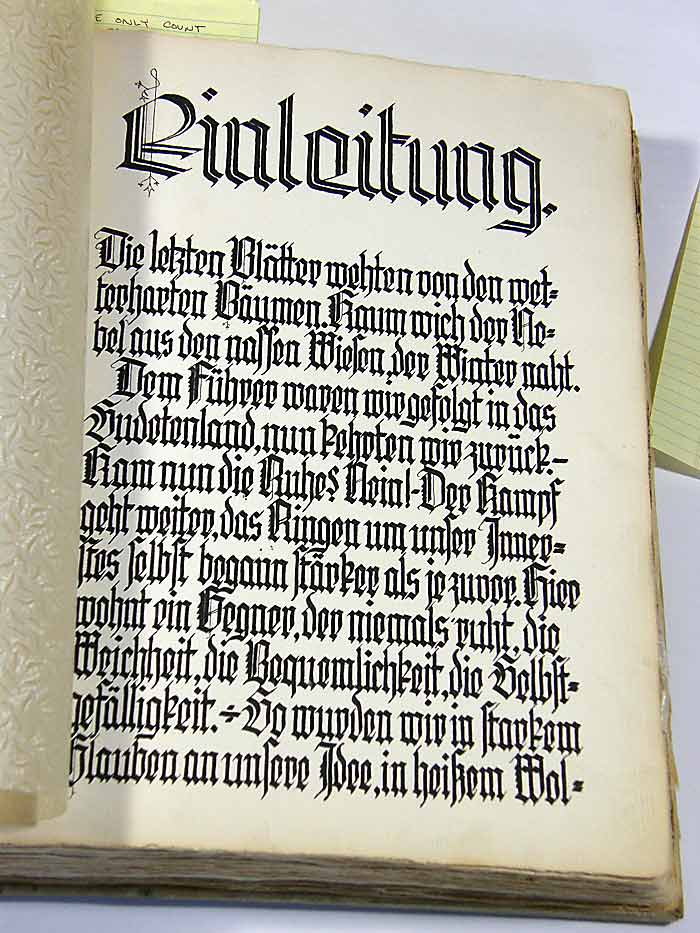 E ONLY COUNT
Einleitung.
Die letzten Blätter wehten von den wet=
terharten Bäumen. Kaum wich der Ne=
bel aus den nassen Wiesen, der Winter naht.
Dem Führer waren wir gefolgt in das
Sudetenland, nun kehrten wir zurück.–
Kam nun die Ruhe? Nein!- Der Kampf
geht weiter, das Ringen um unser Inner=
stes selbst begann stärker als je zuvor. Hier
wohnt ein Gegner, der niemals ruht, die
Weichheit, die Bequemlichkeit, die Selbst=
gefälligkeit. ÷ So wurden wir in starkem
Glauben an unsere Idee, in heißem Wol=